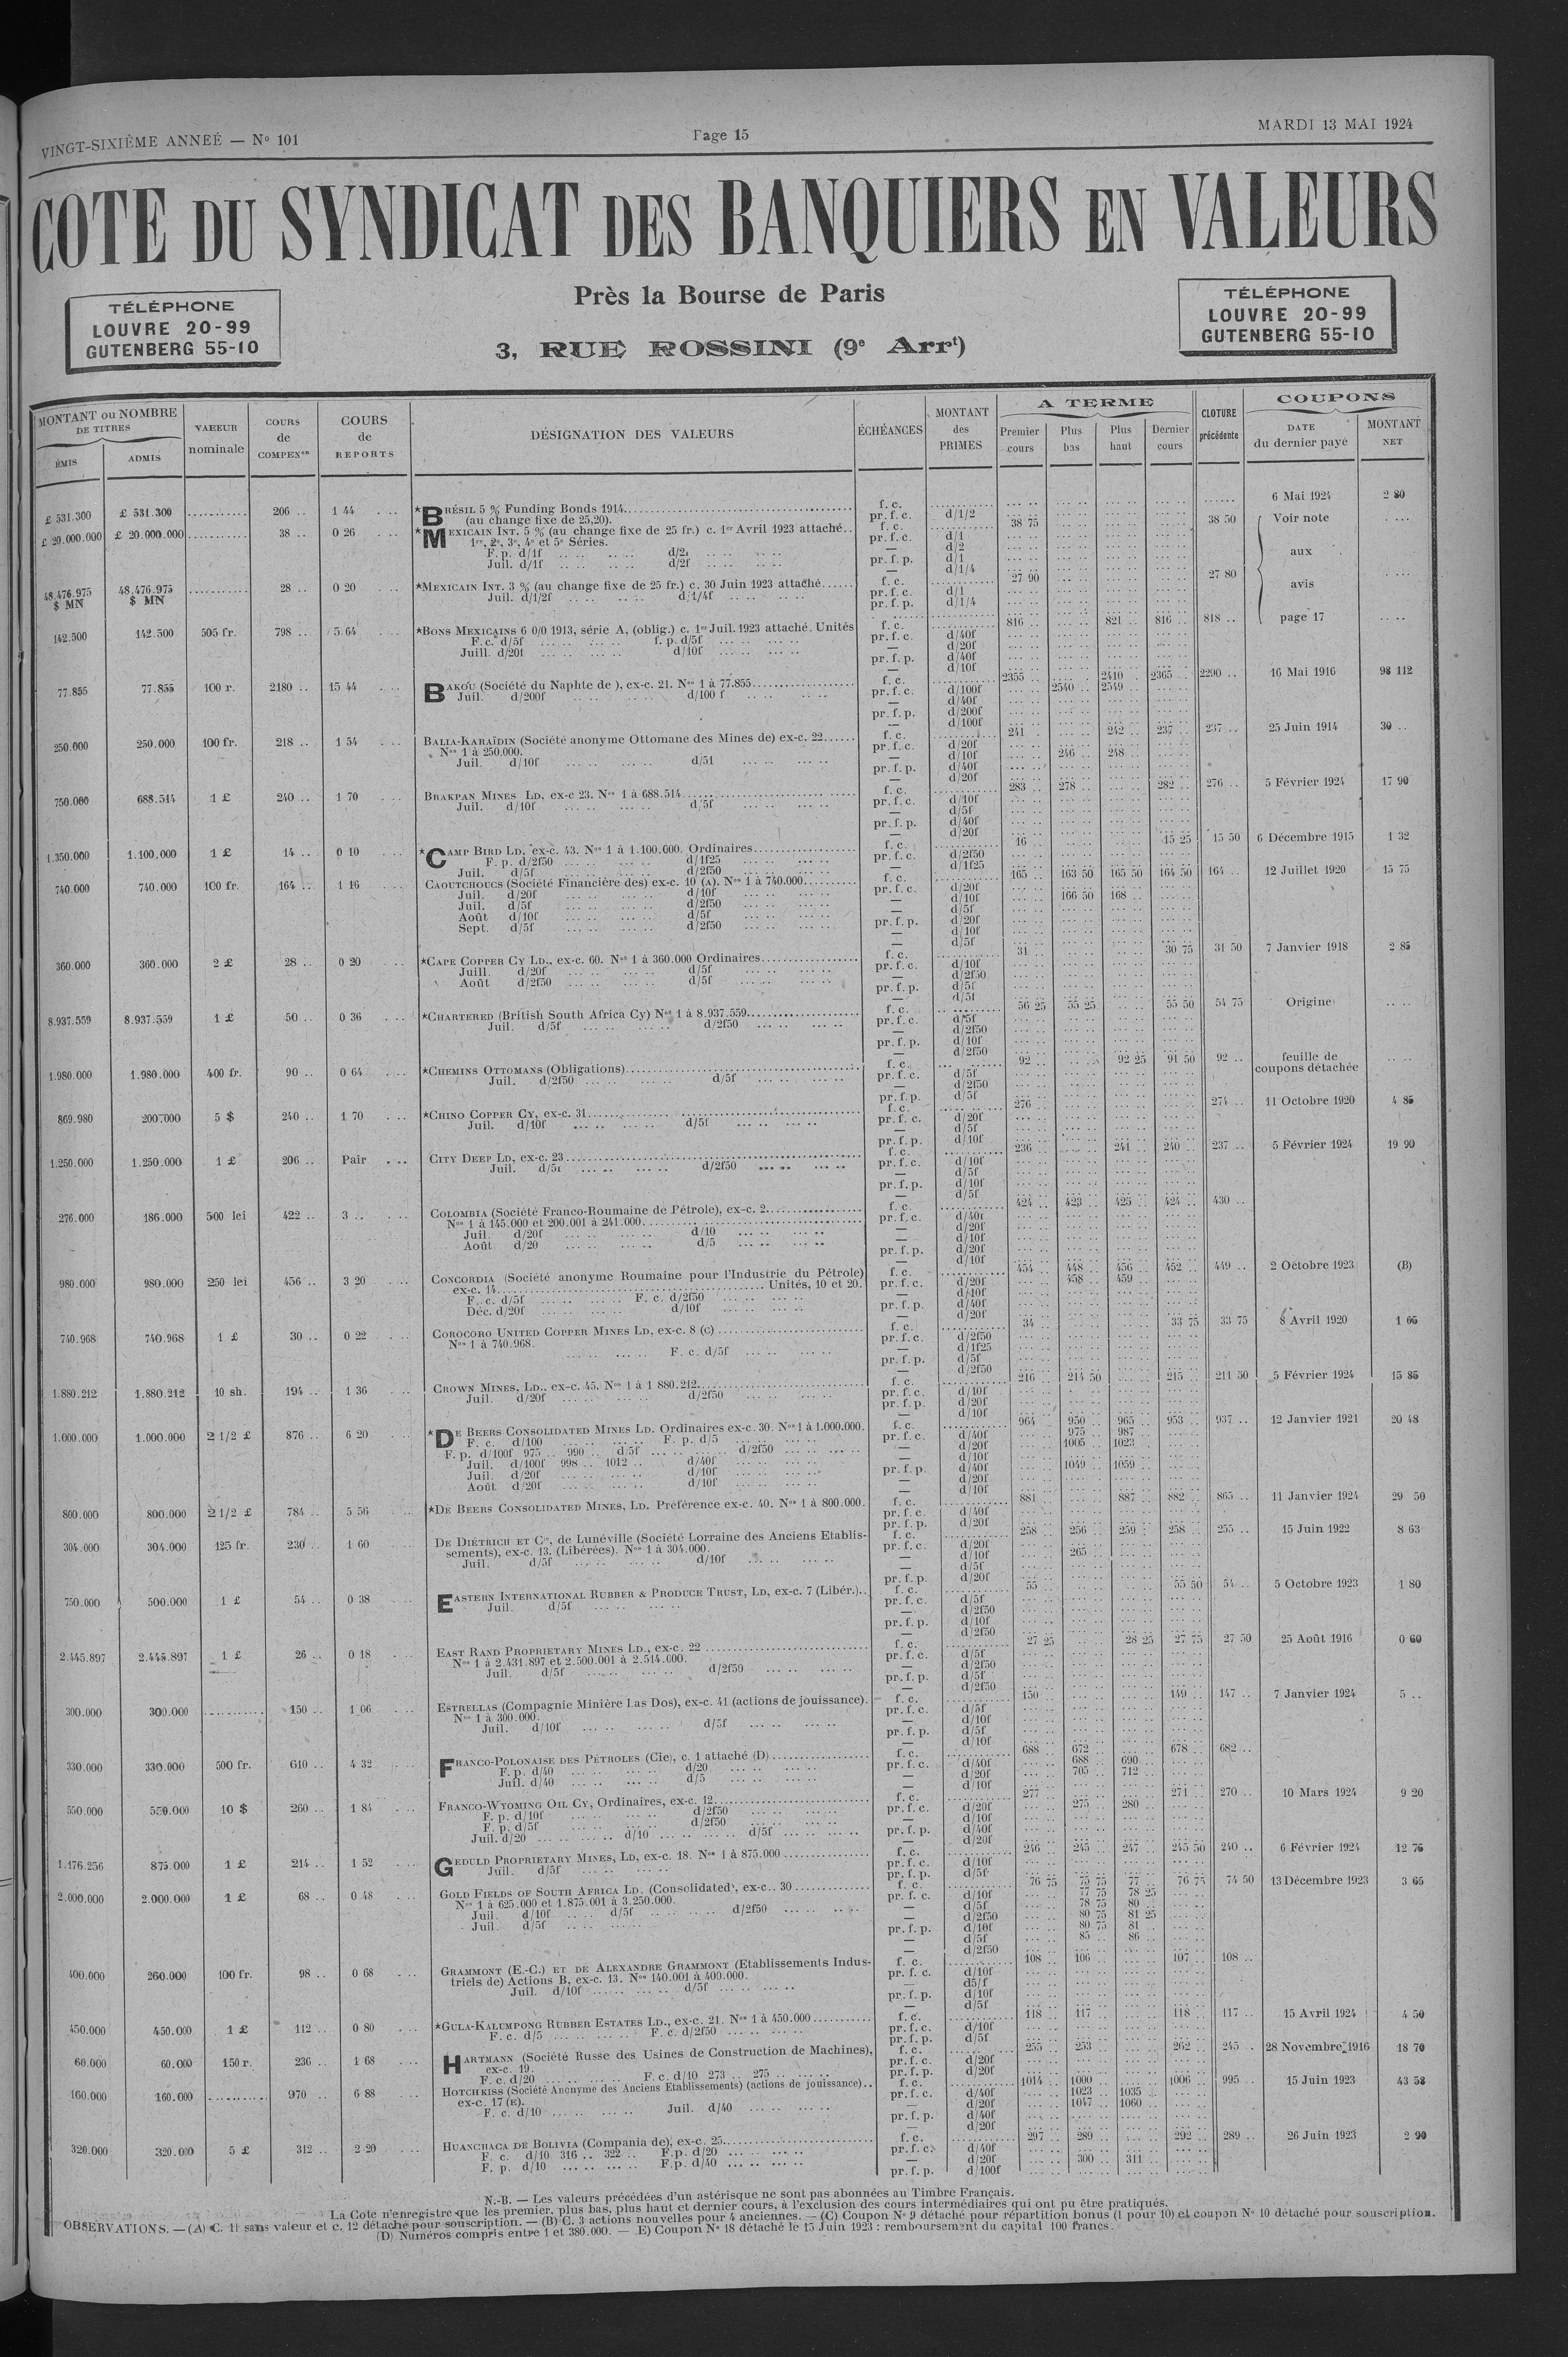 VINGT-SIXIÈME ANNEÉ — Nº 101
Page 15
MARDI 13 MAI 1924
COTE DU SYNDICAT DES BANQUIERS EN VALEURS
Près la Bourse de Paris
3, RUE ROSSINI (9e Arrt)
TÉLÉPHONE
LOUVRE 20-99
GUTENBERG 55-10
TÉLÉPHONE
LOUVRE 20-99
GUTENBERG 55-10
MONTANT ou NOMBRE DE TITRES
ÉMIS
ADMIS
VALEUR nominale
COURS de COMPENon
COURS de REPORTS
DÉSIGNATION DES VALEURS
ÉCHÉANCES
MONTANT des PRIMES
A TERME
Premier cours
Plus bas
Plus haut
Dernier cours
CLOTURE précédente
COUPONS
DATE du dernier payé
MONTANT NET
£ 531.300 £ 531.300 206 .. 1 44 *BRÉSIL 5 % Funding Bonds 1914 f. c. 6 Mai 1924 2 80
(au change fixe de 25,20). pr. f. c. d/1/2
£ 20.000.000 £ 20.000.000 38 .. 0 26 *MEXICAIN INT. 5 % (au change fixe de 25 fr.) c. 1er Avril 1923 attaché.. f. c. 38 75 38 50 Voir note
1re, 2e, 3e, 4e et 5e Séries. pr. f. c. d/1
aux
48.476.975 $ MN 48.476.975 $ MN 28 .. 0 20 *MEXICAIN INT. 3 % (au change fixe de 25 fr.) c. 30 Juin 1923 attaché f. c. 27 90 27 80 avis
Juil. d/1/2f d/1/4f
142.500 142.500 505 fr. 798 .. 5 64 *BONS MEXICAINS 6 0/0 1913, série A, (oblig.) c. 1er Juil. 1923 attaché. Unités f. c. 816 .. 821 .. 816 .. 818 .. page 17
F. c. d/5f f. p. d/5f
Juill. d/20f d/10f
77.855 77.855 100 r. 2180 .. 15 44 BAKOU (Société du Naphte de ), ex-c. 21. Nos 1 à 77.855 f. c. 2355 .. 2410 . 2365 .. 2290 .. 16 Mai 1916 98 112
Juil. d/200f d/100 f pr. f. c. d/100f 2540 .. 2549 ..
250.000 250.000 100 fr. 218 .. 1 54 BALIA-KARAÏDIN (Société anonyme Ottomane des Mines de) ex-c. 22 f. c. 241 242 .. 237 .. 237 .. 25 Juin 1914 30 ..
Nos 1 à 250.000. pr. f. c. d/20f
Juil. d/10f — d/10f 246 .. 248 ..
750.000 688.514 1 £ 240 .. 1 70 BRAKPAN MINES LD, ex-c 23. Nos 1 à 688.514 f. c. 283 .. 278 .. 282 .. 276 .. 5 Février 1924 17 90
Juil. d/10f d/5f
1.350.000 1.100.000 1 £ 14 .. 0 10 *CAMP BIRD LD, ex-c. 43. Nos 1 à 1.100.000. Ordinaires f. c. 16 .. 15 25 15 50 6 Décembre 1915 1 32
F. p. d/2f50 d/1f25
Juil. d/5f d/2f50
740.000 740.000 100 fr. 164 .. 1 16 CAOUTCHOUCS (Société Financière des) ex-c. 10 (A). Nos 1 à 740.000 f. c. 165 .. 163 50 165 50 164 50 164 .. 12 Juillet 1920 15 75
Juil. d/20f d/10f — 166 50 168 ..
Juil. d/5f d/2f50
Août d/10f d/5f
Sept. d/5f d/2f50
360.000 360.000 2 £ 28 .. 0 20 *CAPE COPPER CY LD., ex-c. 60. Nos 1 à 360.000 Ordinaires f. c. 31 .. 30 75 31 50 7 Janvier 1918 2 85
Juill. d/20f d/5f
Août d/2f50 d/5f
8.937.559 8.937.559 1 £ 50 .. 0 36 *CHARTERED (British South Africa Cy) Nos 1 à 8.937.559 f. c. 56 25 55 25 55 50 54 75 Origine
Juil. d/5f d/2f50
1.980.000 1.980.000 400 fr. 90 .. 0 64 *CHEMINS OTTOMANS (Obligations) f. c. 92 .. 92 25 91 50 92 .. feuille de coupons détachée
Juil. d/2f50 d/5f
869.980 200.000 5 $ 240 .. 1 70 *CHINO COPPER CY, ex-c. 31 f. c. 276 .. 274 .. 11 Octobre 1920 4 85
Juil. d/10f d/5f
1.250.000 1.250.000 1 £ 206 .. Pair CITY DEEP LD, ex-c. 23 f. c. 236 .. 241 .. 240 .. 237 .. 5 Février 1924 19 90
Juil. d/5f d/2f50
276.000 186.000 500 lei 422 .. 3 .. COLOMBIA (Société Franco-Roumaine de Pétrole), ex-c. 2 f. c. 424 .. 423 .. 425 .. 424 .. 430 ..
Nos 1 à 145.000 et 200.001 à 241.000
Juil. d/20f d/10
Août d/20 d/5
980.000 980.000 250 lei 456 .. 3 20 CONCORDIA (Société anonyme Roumaine pour l'Industrie du Pétrole) f. c. 454 .. 448 .. 456 .. 452 .. 449 .. 2 Octobre 1923 (B)
ex-c. 14 Unités, 10 et 20. pr. f. c. d/20f 458 .. 459 ..
F. c. d/5f F. c. d/2f50
Déc. d/20f d/10f
740.968 740.968 1 £ 30 .. 0 22 COROCORO UNITED COPPER MINES LD, ex-c. 8 (C) f. c. 34 33 75 33 75 8 Avril 1920 1 05
Nos 1 à 740.968.
F. c. d/5f
1.880.212 1.880.212 10 sh. 194 .. 1 36 CROWN MINES, LD., ex-c. 45. Nos 1 à 1 880.212 f. c. 216 .. 214 50 215 .. 211 50 5 Février 1924 15 85
Juil. d/20f d/2f50
1.000.000 1.000.000 2 1/2 £ 876 .. 6 20 *DE BEERS CONSOLIDATED MINES LD. Ordinaires ex-c. 30. Nos 1 à 1.000.000. f. c. 964 .. 950 .. 965 .. 953 .. 937 .. 12 Janvier 1921 20 48
F. c. d/100 F. p. d/5 pr. f. c. d/40f 975 .. 987 ..
F. p. d/100f 975 .. 990 .. d/5f d/2f50 — d/20f 1005 .. 1023 ..
Juil. d/100f 998 .. 1012 .. d/40f
Juil. d/20f d/10f pr. f. p. d/40f 1049 .. 1059 ..
Août d/20f d/10f
800.000 800.000 2 1/2 £ 784 .. 5 56 *DE BEERS CONSOLIDATED MINES, LD. Préférence ex-c. 40. Nos 1 à 800.000. f. c. 881 .. 887 .. 882 .. 865 .. 11 Janvier 1924 29 50
304.000 304.000 125 fr. 230 .. 1 60 DE DIÉTRICH ET Cie, de Lunéville (Société Lorraine des Anciens Etablis- f. c. 258 .. 256 .. 259 .. 258 .. 255 .. 15 Juin 1922 8 63
sements), ex-c. 13. (Libérées). Nos 1 à 304.000. — d/10f 265 ..
Juil. d/5f d/10f
750.000 500.000 1 £ 54 .. 0 38 EASTERN INTERNATIONAL RUBBER & PRODUCE TRUST, LD, ex-c. 7 (Libér.).. f. c. 55 55 50 54 .. 5 Octobre 1923 1 80
Juil. d/5f
2.445.897 2.445.897 1 £ 26 .. 0 18 EAST RAND PROPRIETARY MINES LD., ex-c. 22 f. c. 27 25 28 25 27 75 27 50 25 Août 1916 0 60
Nos 1 à 2.431.897 et 2.500.001 à 2.514.000.
Juil. d/5f d/2f50
300.000 300.000 150 .. 1 06 ESTRELLAS (Compagnie Minière Las Dos), ex-c. 41 (actions de jouissance). f. c. 150 .. 149 .. 147 .. 7 Janvier 1924 5 ..
Nos 1 à 300.000.
Juil. d/10f d/5f
330.000 330.000 500 fr. 610 .. 4 32 FRANCO-POLONAISE DES PÉTROLES (Cie), c. 1 attaché (D) f. c. 688 .. 672 .. 678 .. 682 ..
F. p. d/40 d/20 pr. f. c. d/40f 688 .. 690 ..
Juil. d/40 d/5 — d/20f 705 .. 712 ..
550.000 550.000 10 $ 260 .. 1 84 FRANCO-WYOMING OIL CY, Ordinaires, ex-c. 12 f. c. 277 .. 271 .. 270 .. 10 Mars 1924 9 20
F. p. d/10f d/2f50 pr. f. c. d/20f 275 .. 280 ..
F. p. d/5f d/2f50
Juil. d/20 d/10 d/5f
1.176.256 875.000 1 £ 214 .. 1 52 GEDULD PROPRIETARY MINES, LD, ex-c. 18. Nos 1 à 875.000 f. c. 246 .. 245 .. 247 .. 245 50 240 .. 6 Février 1924 12 75
Juil. d/5f
2.000.000 2.000.000 1 £ 68 .. 0 48 GOLD FIELDS OF SOUTH AFRICA LD. (Consolidated), ex-c.. 30 f. c. 76 75 75 75 77 .. 76 75 74 50 13 Décembre 1923 3 65
Nos 1 à 625.000 et 1.875.001 à 3.250.000. pr. f. c. d/10f 77 75 78 25
Juil. d/10f d/5f d/2f50 — d/5f 78 75 80 ..
Juil. d/5f — d/2f50 80 75 81 25
pr. f. p. d/10f 80 75 81 ..
— d/5f 85 .. 86 ..
— d/2f50
400.000 260.000 100 fr. 98 .. 0 68 GRAMMONT (E.-C.) ET DE ALEXANDRE GRAMMONT (Etablissements Indus- f. c. 108 106 .. 107 .. 108 ..
triels de) Actions B, ex-c. 13. Nos 140.001 à 400.000.
Juil. d/10f d/5f
450.000 450.000 1 £ 112 .. 0 80 *GULA-KALUMPONG RUBBER ESTATES LD., ex-c. 21. Nos 1 à 450.000 f. c. 118 .. 117 .. 118 .. 117 .. 15 Avril 1924 4 50
F. c. d/5 F. c. d/2f50
60.000 60.000 150 r. 236 .. 1 68 HARTMANN (Société Russe des Usines de Construction de Machines), f. c. 255 .. 253 .. 262 .. 245 .. 28 Novembre 1916 18 70
ex-c. 19.
F. c. d/20 F. c. d/10 273 .. 275 ..
160.000 160.000 970 .. 6 88 HOTCHKISS (Société Anonyme des Anciens Etablissements) (actions de jouissance).. f. c. 1014 .. 1000 .. 1006 .. 995 .. 15 Juin 1923 43 58
ex-c. 17 (E). pr. f. c. d/40f 1023 .. 1035 ..
F. c. d/10 Juil. d/40 — d/20f 1047 .. 1060 ..
320.000 320.000 5 £ 312 .. 2 20 HUANCHACA DE BOLIVIA (Compania de), ex-c. 25 f. c. 297 .. 289 .. 292 .. 289 .. 26 Juin 1923 2 90
F. c. d/10 316 .. 322 .. F.p. d/20
F. p. d/10 F.p. d/40 — d/20f 300 .. 311 ..
pr. f. p. d/100f
N.-B. — Les valeurs précédées d'un astérisque ne sont pas abonnées au Timbre Français.
La Cote n'enregistre que les premier, plus bas, plus haut et dernier cours, à l'exclusion des cours intermédiaires qui ont pu être pratiqués.
OBSERVATIONS. — (A) C. 11 sans valeur et c. 12 détaché pour souscription. — (B) C. 3 actions nouvelles pour 4 anciennes. — (C) Coupon Nº 9 détaché pour répartition bonus (1 pour 10) et coupon Nº 10 détaché pour souscription.
(D) Numéros compris entre 1 et 380.000. — E) Coupon Nº 18 détaché le 15 Juin 1923 : remboursement du capital 100 francs.